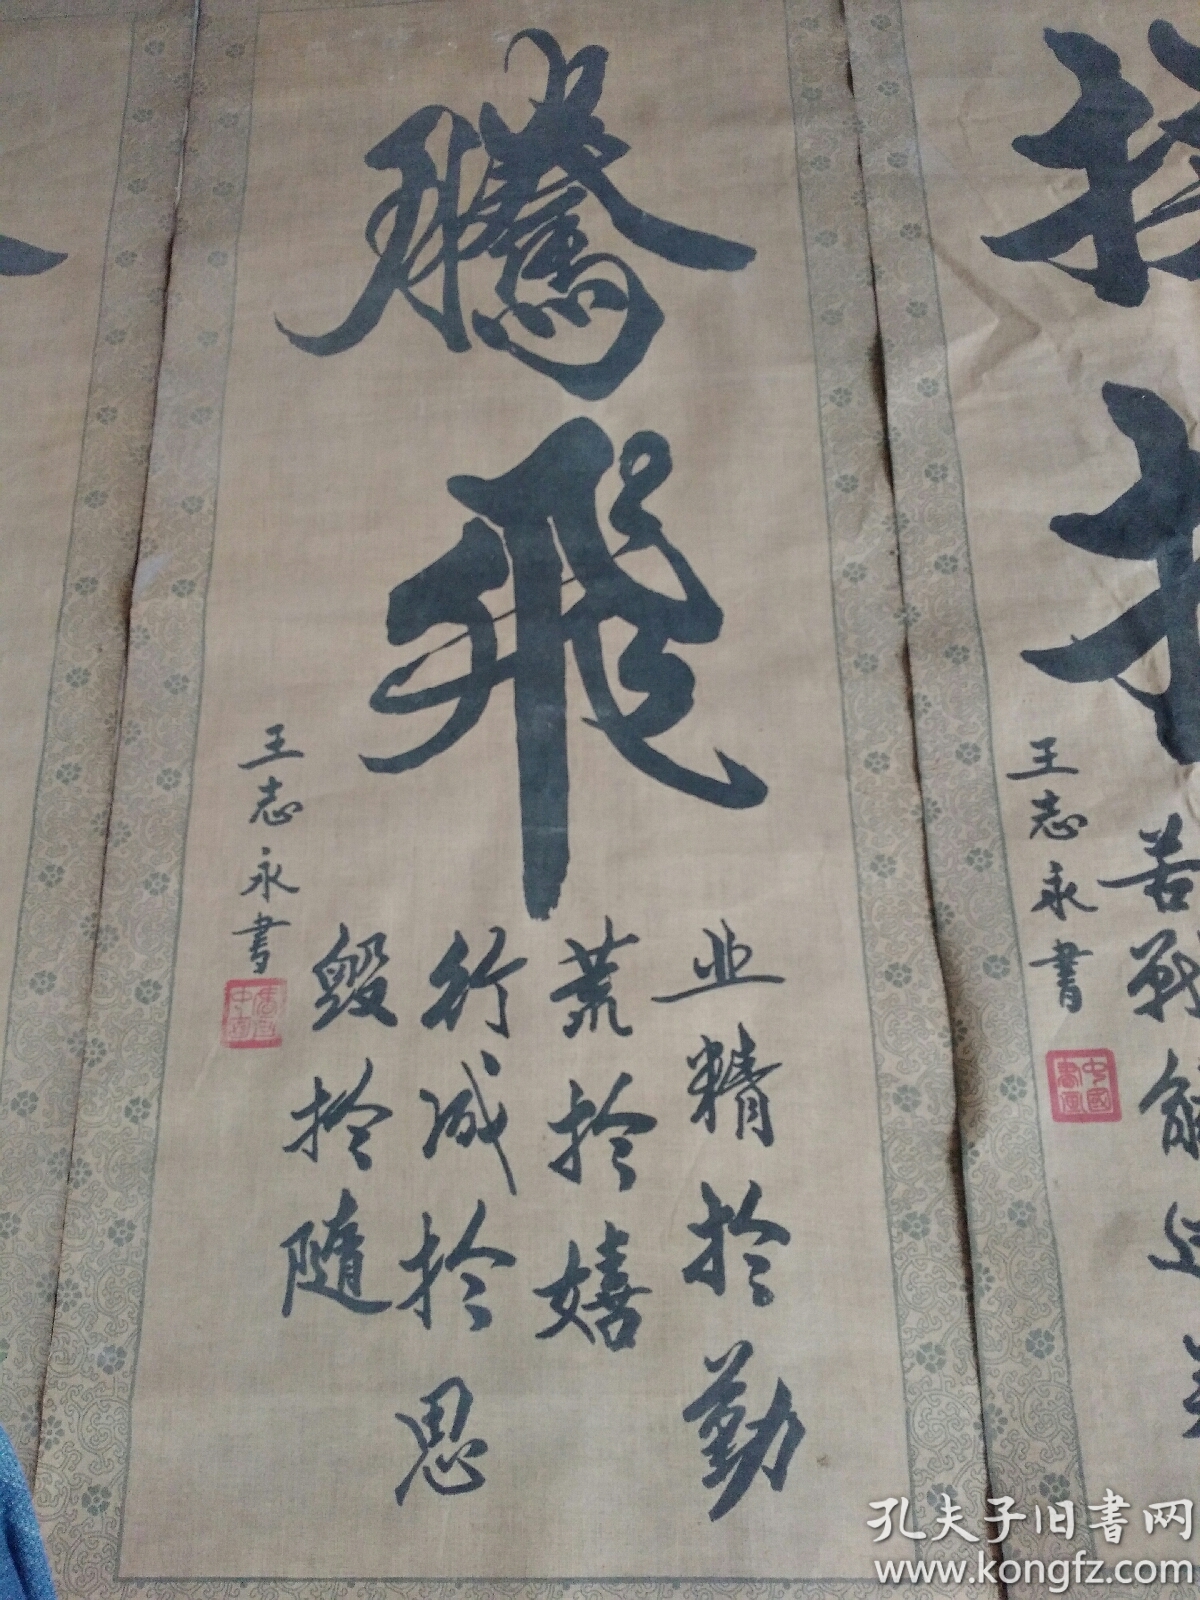 騰飛
业精於勤
荒於嬉
行成於思
毀於隨
王志永書
王志永書
中國書画
苦戰能
孔夫子旧书网
www.kongfz.com